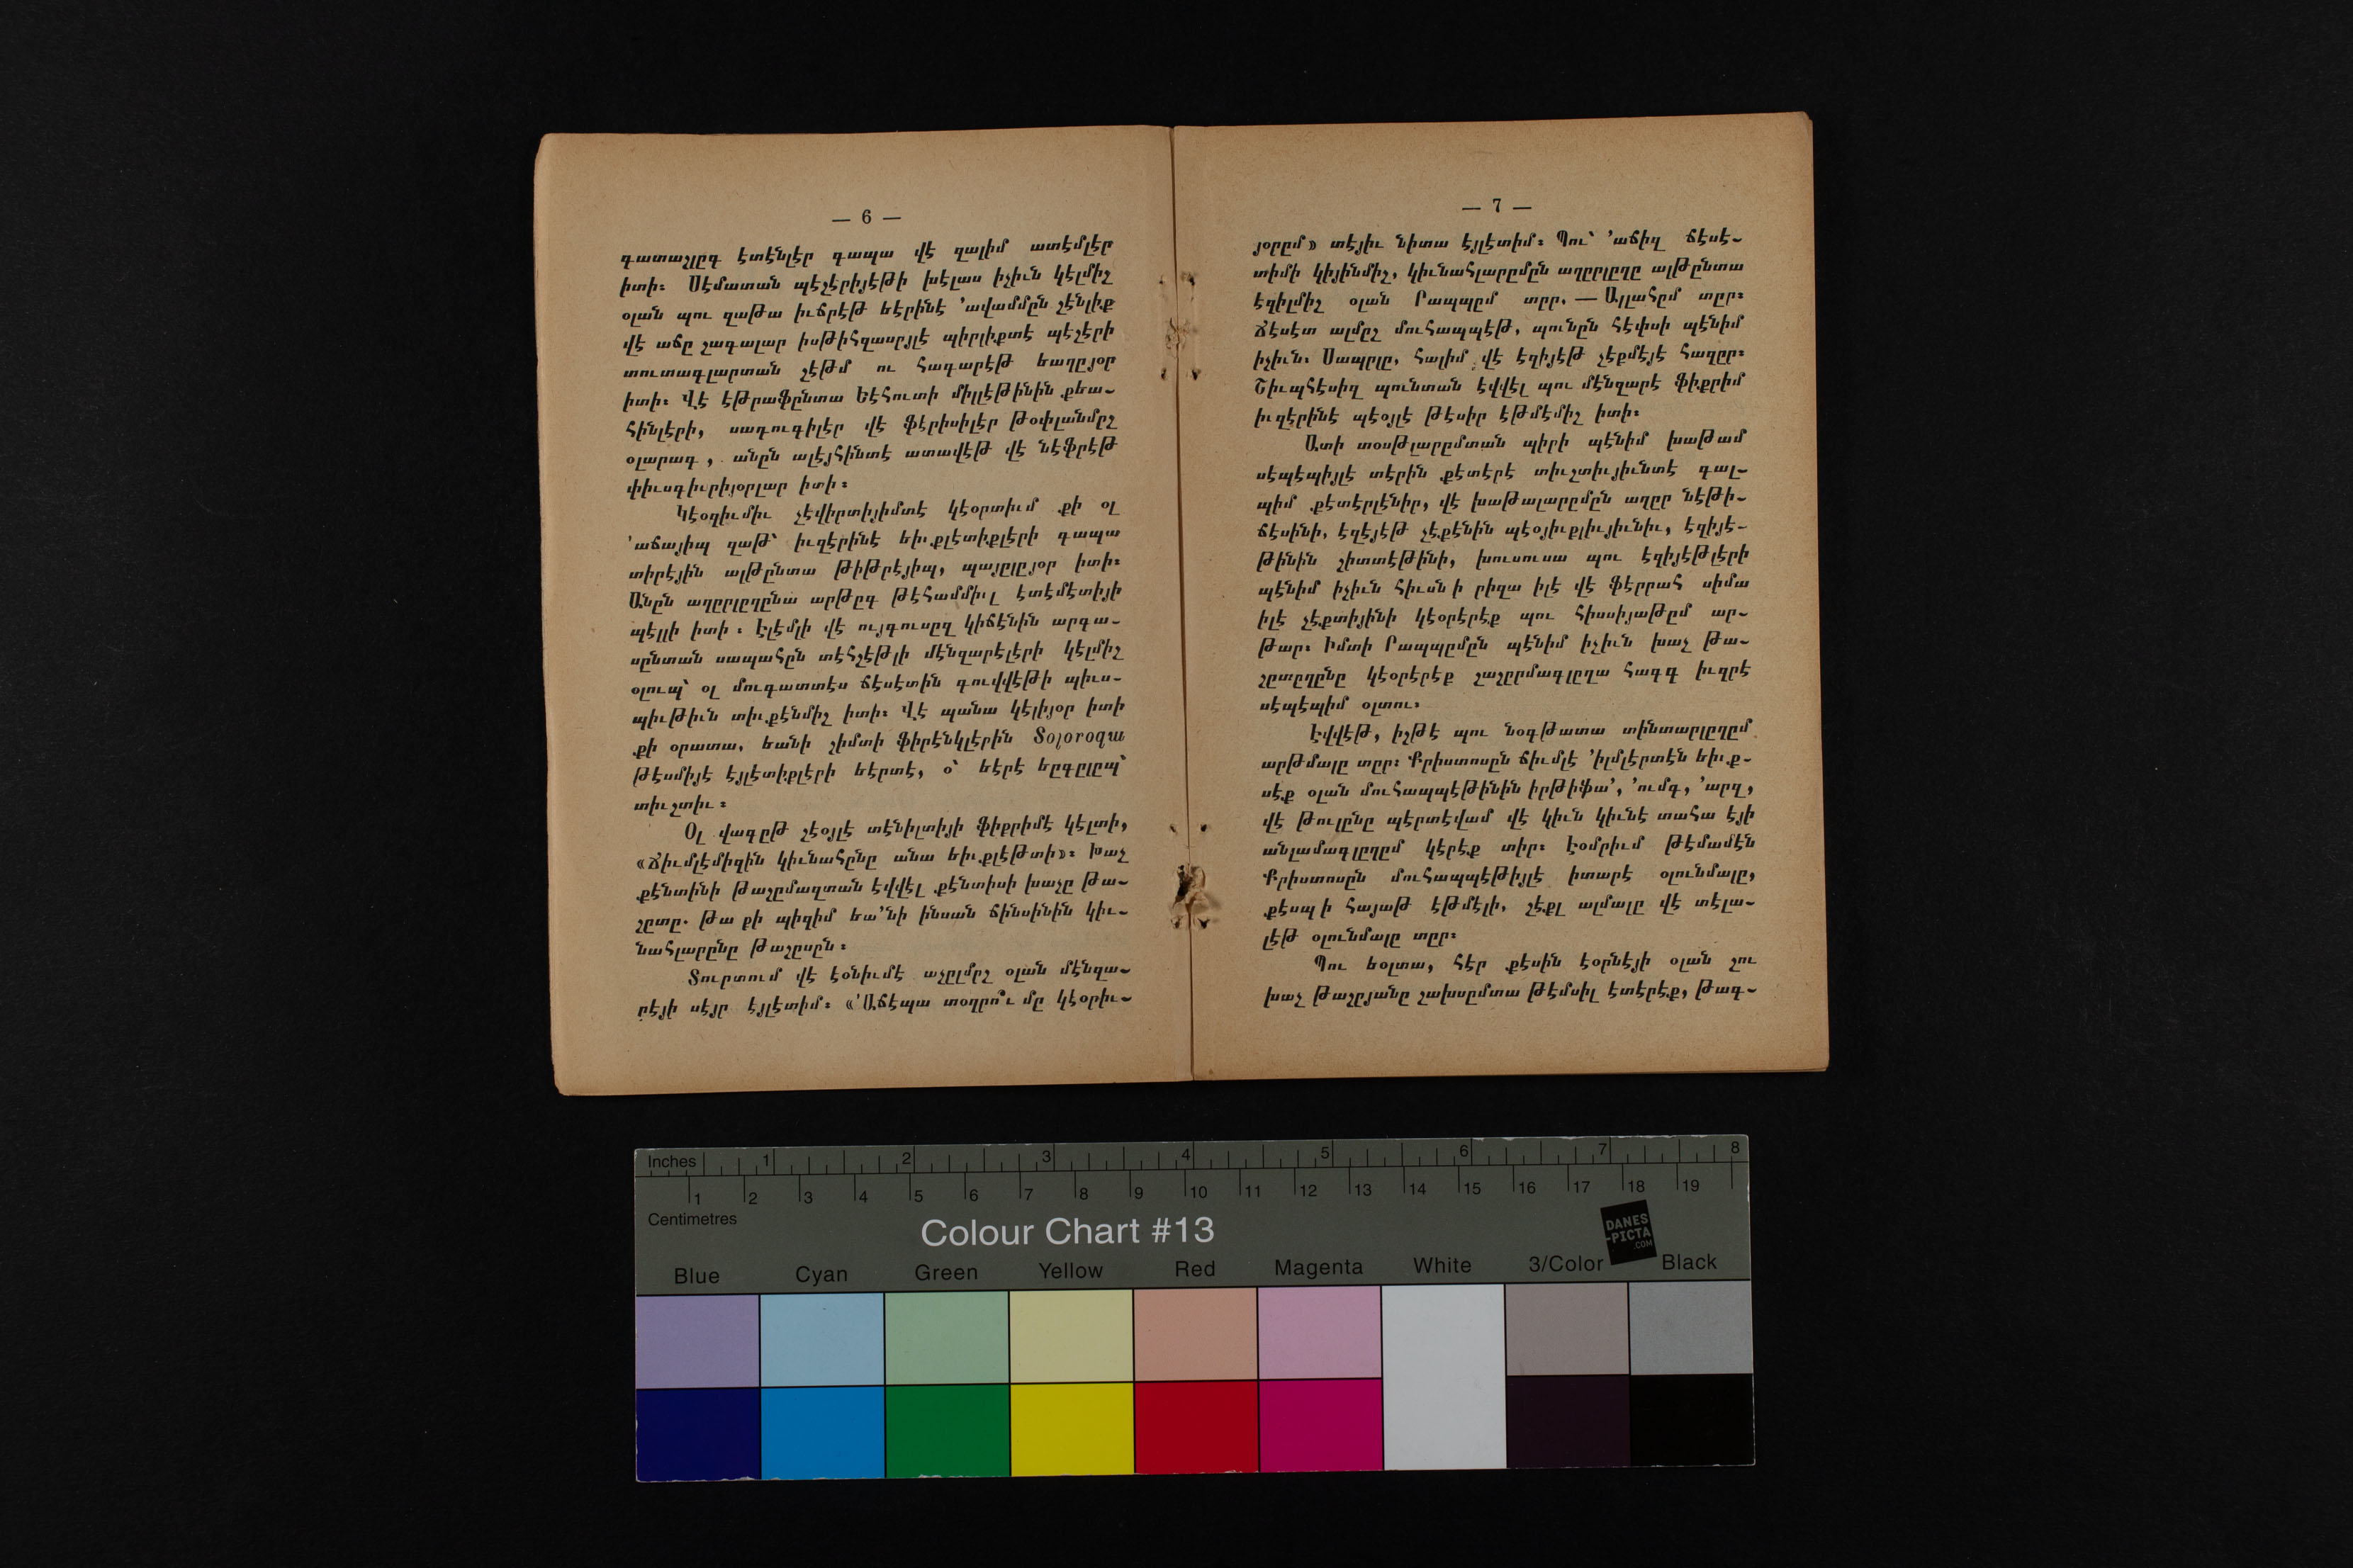 — 6 —
գատաչլըգ էտէնլէր գապա վէ զալիմ ատէմլէր
իտի։ Սէմատան պէշէրիյէթի խէլաս իչիւն կէլմիշ
օլան պու զաթա իւճրէթ եէրինէ ՚ավամմըն շէնլիք
վէ աճը շագալար իսթիհզասըյլէ պիրլիքտէ պէշէրի
տուտագլարտան շէթմ ու հագարէթ եաղըյօր
իտի։ Վէ էթրաֆընտա Եէհուտի միլլէթինին քեա-
հինլէրի, սադուգիլէր վէ ֆէրիսիլէր թօփլանմըշ
օլարագ, անըն ալէյհինտէ ատավէթ վէ նէֆրէթ
փիւսգիւրիյօրլար իտի։
Կէօզիւմիւ չէվիրտիյիմտէ կէօրտիւմ քի օլ
՚աճայիպ զաթ՝ իւզէրինէ եիւքլէտիքլէրի գապա
տիրէյին ալթընտա թիթրէյիպ, պայըլըյօր իտի։
Անըն աղըրլըղընա արթըգ թէհամմիւլ էտէմէտիյի
պէլլի իտի։ Էլէմլի վէ ույգուսըզ կիճէնին արգա-
սընտան սապահըն տէհշէթլի մէնզարէլէրի կէլմիշ
օլուպ՝ օլ մուգատտէս ճէսէտին գուվվէթի պիւս-
պիւթիւն տիւքէնմիշ իտի։ Վէ պանա կէլիյօր իտի
քի օրատա, եանի շիմտի ֆիրէնկլէրին Տօլօրօզա
թէսմիյէ էյլէտիքլէրի եէրտէ, օ՝ եէրէ եըգըլըպ՝
տիւշտիւ։
Օլ վագըթ շէօյլէ տէնիլտիյի ֆիքրիմէ կէլտի,
«Ճիւմլէմիզին կիւնահընը անա եիւքլէթտի»։ Խաչ
քէնտինի թաշըմազտան էվվէլ քէնտիսի խաչը թա-
շըտը. թա քի պիզիմ եա՚նի ինսան ճինսինին կիւ-
նահլարընը թաշըսըն։
Տուրտում վէ էօնիւմէ աչըլմըշ օլան մէնզա-
րէյի սէյր էյլէտիմ։ «՚Աճէպա տօղրո՞ւ մը կէօրիւ-
— 7 —
յօրըմ» տէյիւ նիտա էյլէտիմ։ Պու՝ ՚աճիզ ճէսէ-
տիմի կիյինմիշ, կիւնահլարըմըն աղըրլըղը ալթընտա
էզիլմիշ օլան Րապպըմ տըր. — Ալլահըմ տըր։
Ճէսէտ ալմըշ մուհապպէթ, պունըն հէփսի պէնիմ
իչիւն։ Սապըլը, հալիմ վէ էզիյէթ չէքմէյէ հազըր։
Շիւպհէսիզ պունտան էվվէլ պու մէնզարէ ֆիքրիմ
իւզէրինէ պէօյլէ թէսիր էթմէմիշ իտի։
Ատի տօսթլարըմտան պիրի պէնիմ խաթամ
սէպէպիյլէ տէրին քէտէրէ տիւշտիւյիւնտէ գալ-
պիմ քէտէրլէնիր, վէ խաթալարըմըն աղըր նէթի-
ճէսինի, էզէյէթ չէքէնին պէօյիւքլիւյիւնիւ, էզիյէ-
թինին շիտտէթինի, խուսուսա պու էզիյէթլէրի
պէնիմ իչիւն հիւսնի րիզա իլէ վէ ֆէրրահ սիմա
իլէ չէքտիյինի կէօրէրէք պու հիսսիյաթըմ ար-
թար։ Իմտի Րապպըմըն պէնիմ իչիւն խաչ թա-
շըտըղընը կէօրէրէք շաշըրմագլըղա հագգ իւզրէ
սէպէպիմ օլտու։
Էվվէթ, իշթէ պու նօգթատա տինտարլըղըմ
արթմալը տըր։ Քրիստոսըն ճիւմլէ ՚իլմլէրտէն եիւք-
սէք օլան մուհապպէթինին իրթիֆա՚, ՚ումգ, ՚արզ,
վէ թուլընը պէրտէվամ վէ կիւն կիւնէ տահա էյի
անլամագլըղըմ կէրէք տիր։ Էօմրիւմ թէմամէն
Քրիստոսըն մուհապպէթիյլէ իտարէ օլունմալը,
քէսպի հայաթ էթմէլի, շէքլ ալմալը վէ տէլա-
լէթ օլունմալը տըր։
Պու եօլտա, հէր քէսին էօրնէյի օլան շու
խաչ թաշըյանը շախսըմտա թէմսիլ էտէրէք, թագ-
Inches 1 2 3 4 5 6 7 8
1 2 3 4 5 6 7 8 9 10 11 12 13 14 15 16 17 18 19
Centimetres
Colour Chart #13
DANES
-PICTA
.COM
Blue Cyan Green Yellow Red Magenta White 3/Color Black